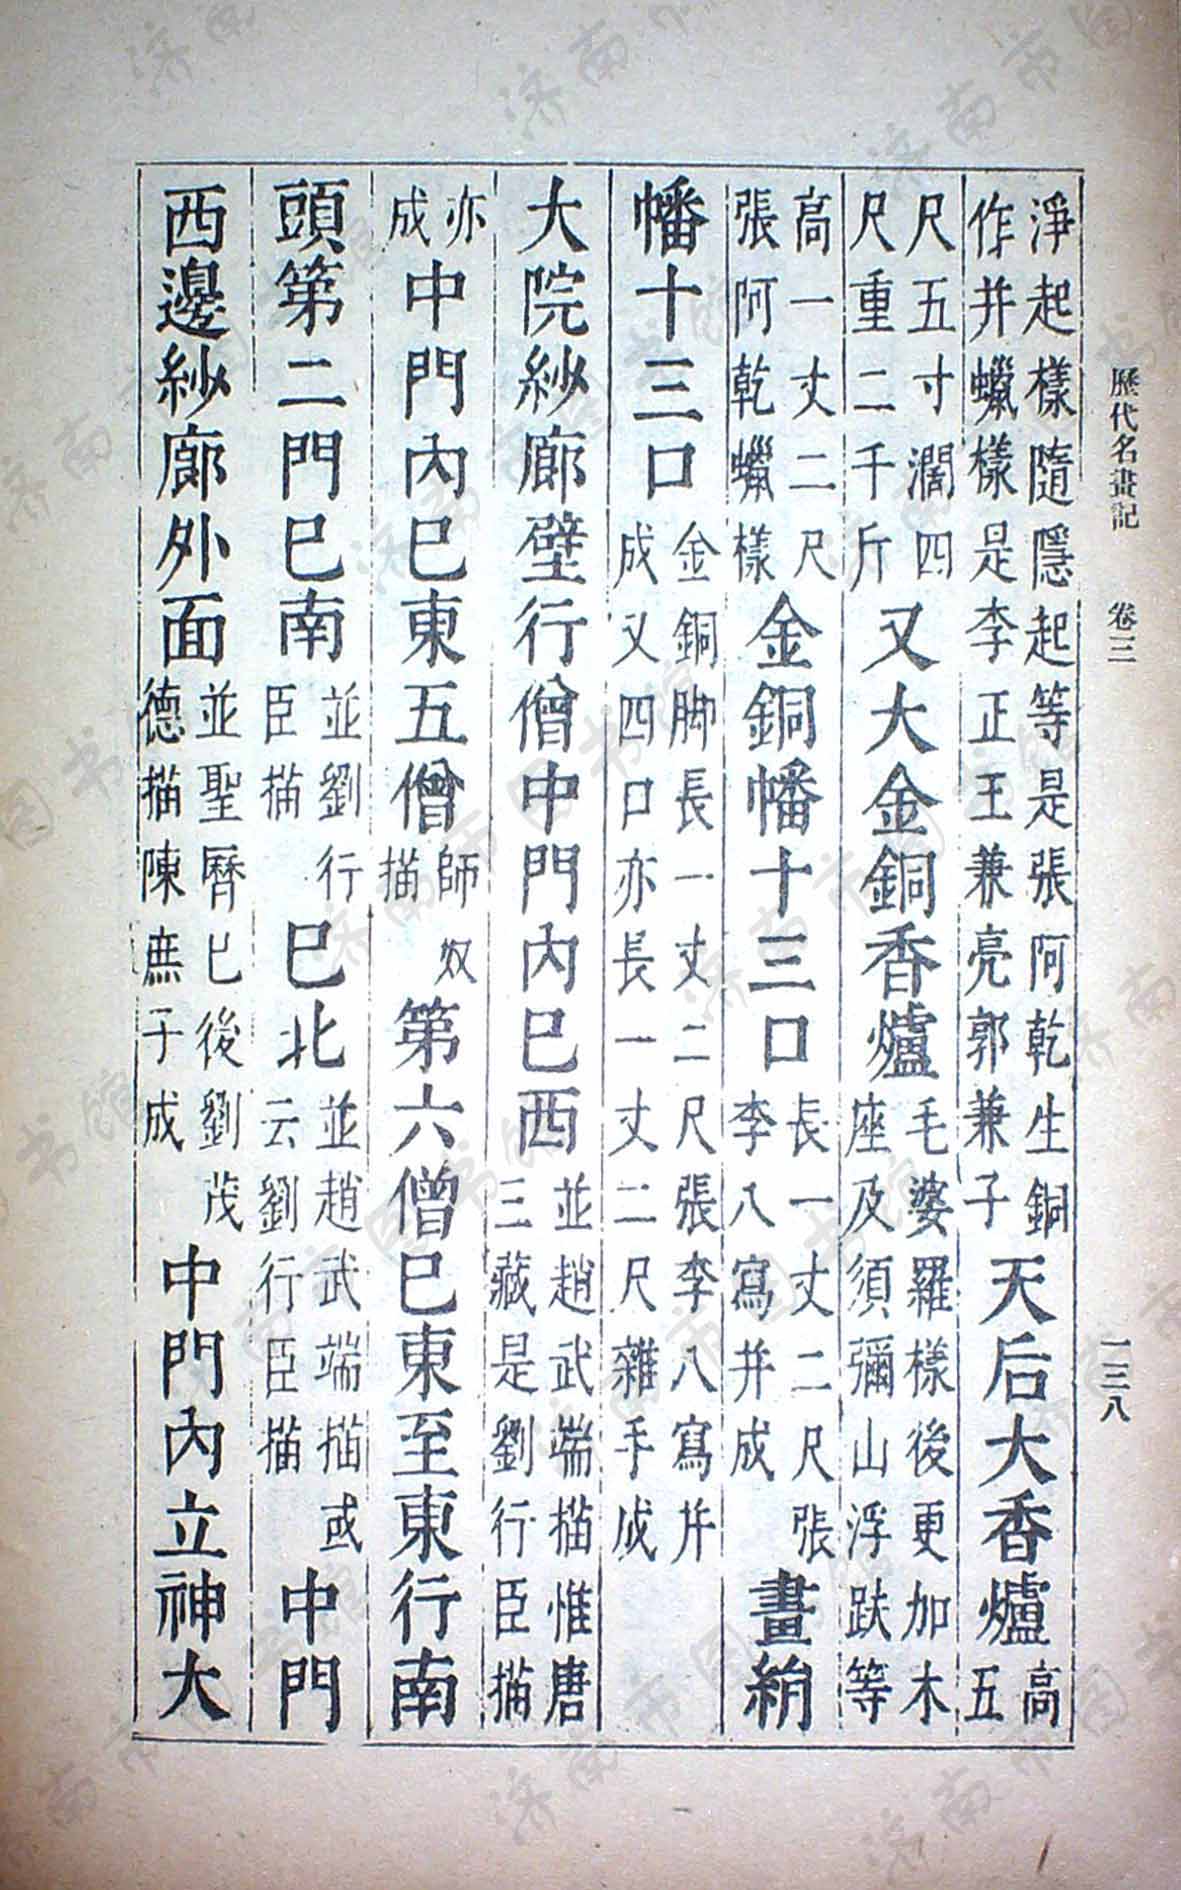 歷代名畫記 卷三 一三八
淨起樣隨隱起等是張阿乾生銅作并蠟樣是李正王兼亮郭兼子天后大香爐高五
尺五寸濶四尺重二千斤又大金銅香爐毛婆羅樣後更加木座及須彌山浮趺等
高一丈二尺張阿乾蠟樣金銅幡十三口長一丈二尺張李八寫并成畫綃
幡十三口金銅脚長一丈二尺張李八寫并成又四口亦長一丈二尺雜手成
大院紗廊壁行僧中門內巳西並趙武端描惟唐三藏是劉行臣描
亦成中門內巳東五僧師奴描第六僧巳東至東行南
頭第二門巳南並劉行臣描巳北並趙武端描或云劉行臣描中門
西邊紗廊外面並聖曆巳後劉茂德描陳庶子成中門內立神大
济南市图书馆